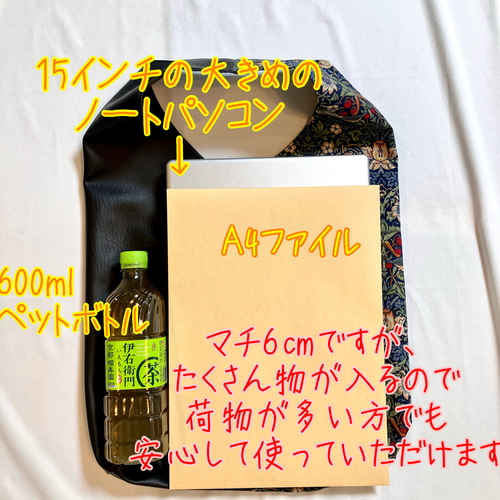 15インチの大きめの
ノートパソコン
↓
A4ファイル
600ml
ペットボトル
伊右衛門
茶
京都福寿園
マチ6cmですが、
たくさん物が入るので
荷物が多い方でも
安心して使っていただけます